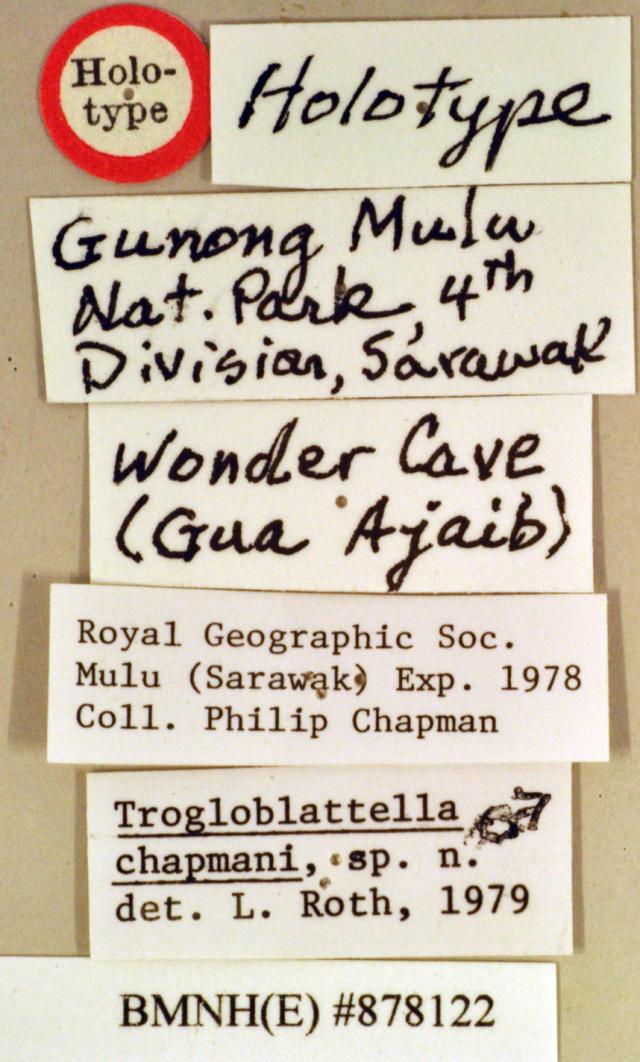 Holo-
type
Holotype
Gunong Mulu
Nat. Park, 4th
Division, Sarawak
Wonder Cave
(Gua Ajaib)
Royal Geographic Soc.
Mulu (Sarawak) Exp. 1978
Coll. Philip Chapman
Trogloblattella
chapmani, sp. n.
det. L. Roth, 1979
BMNH(E) #878122